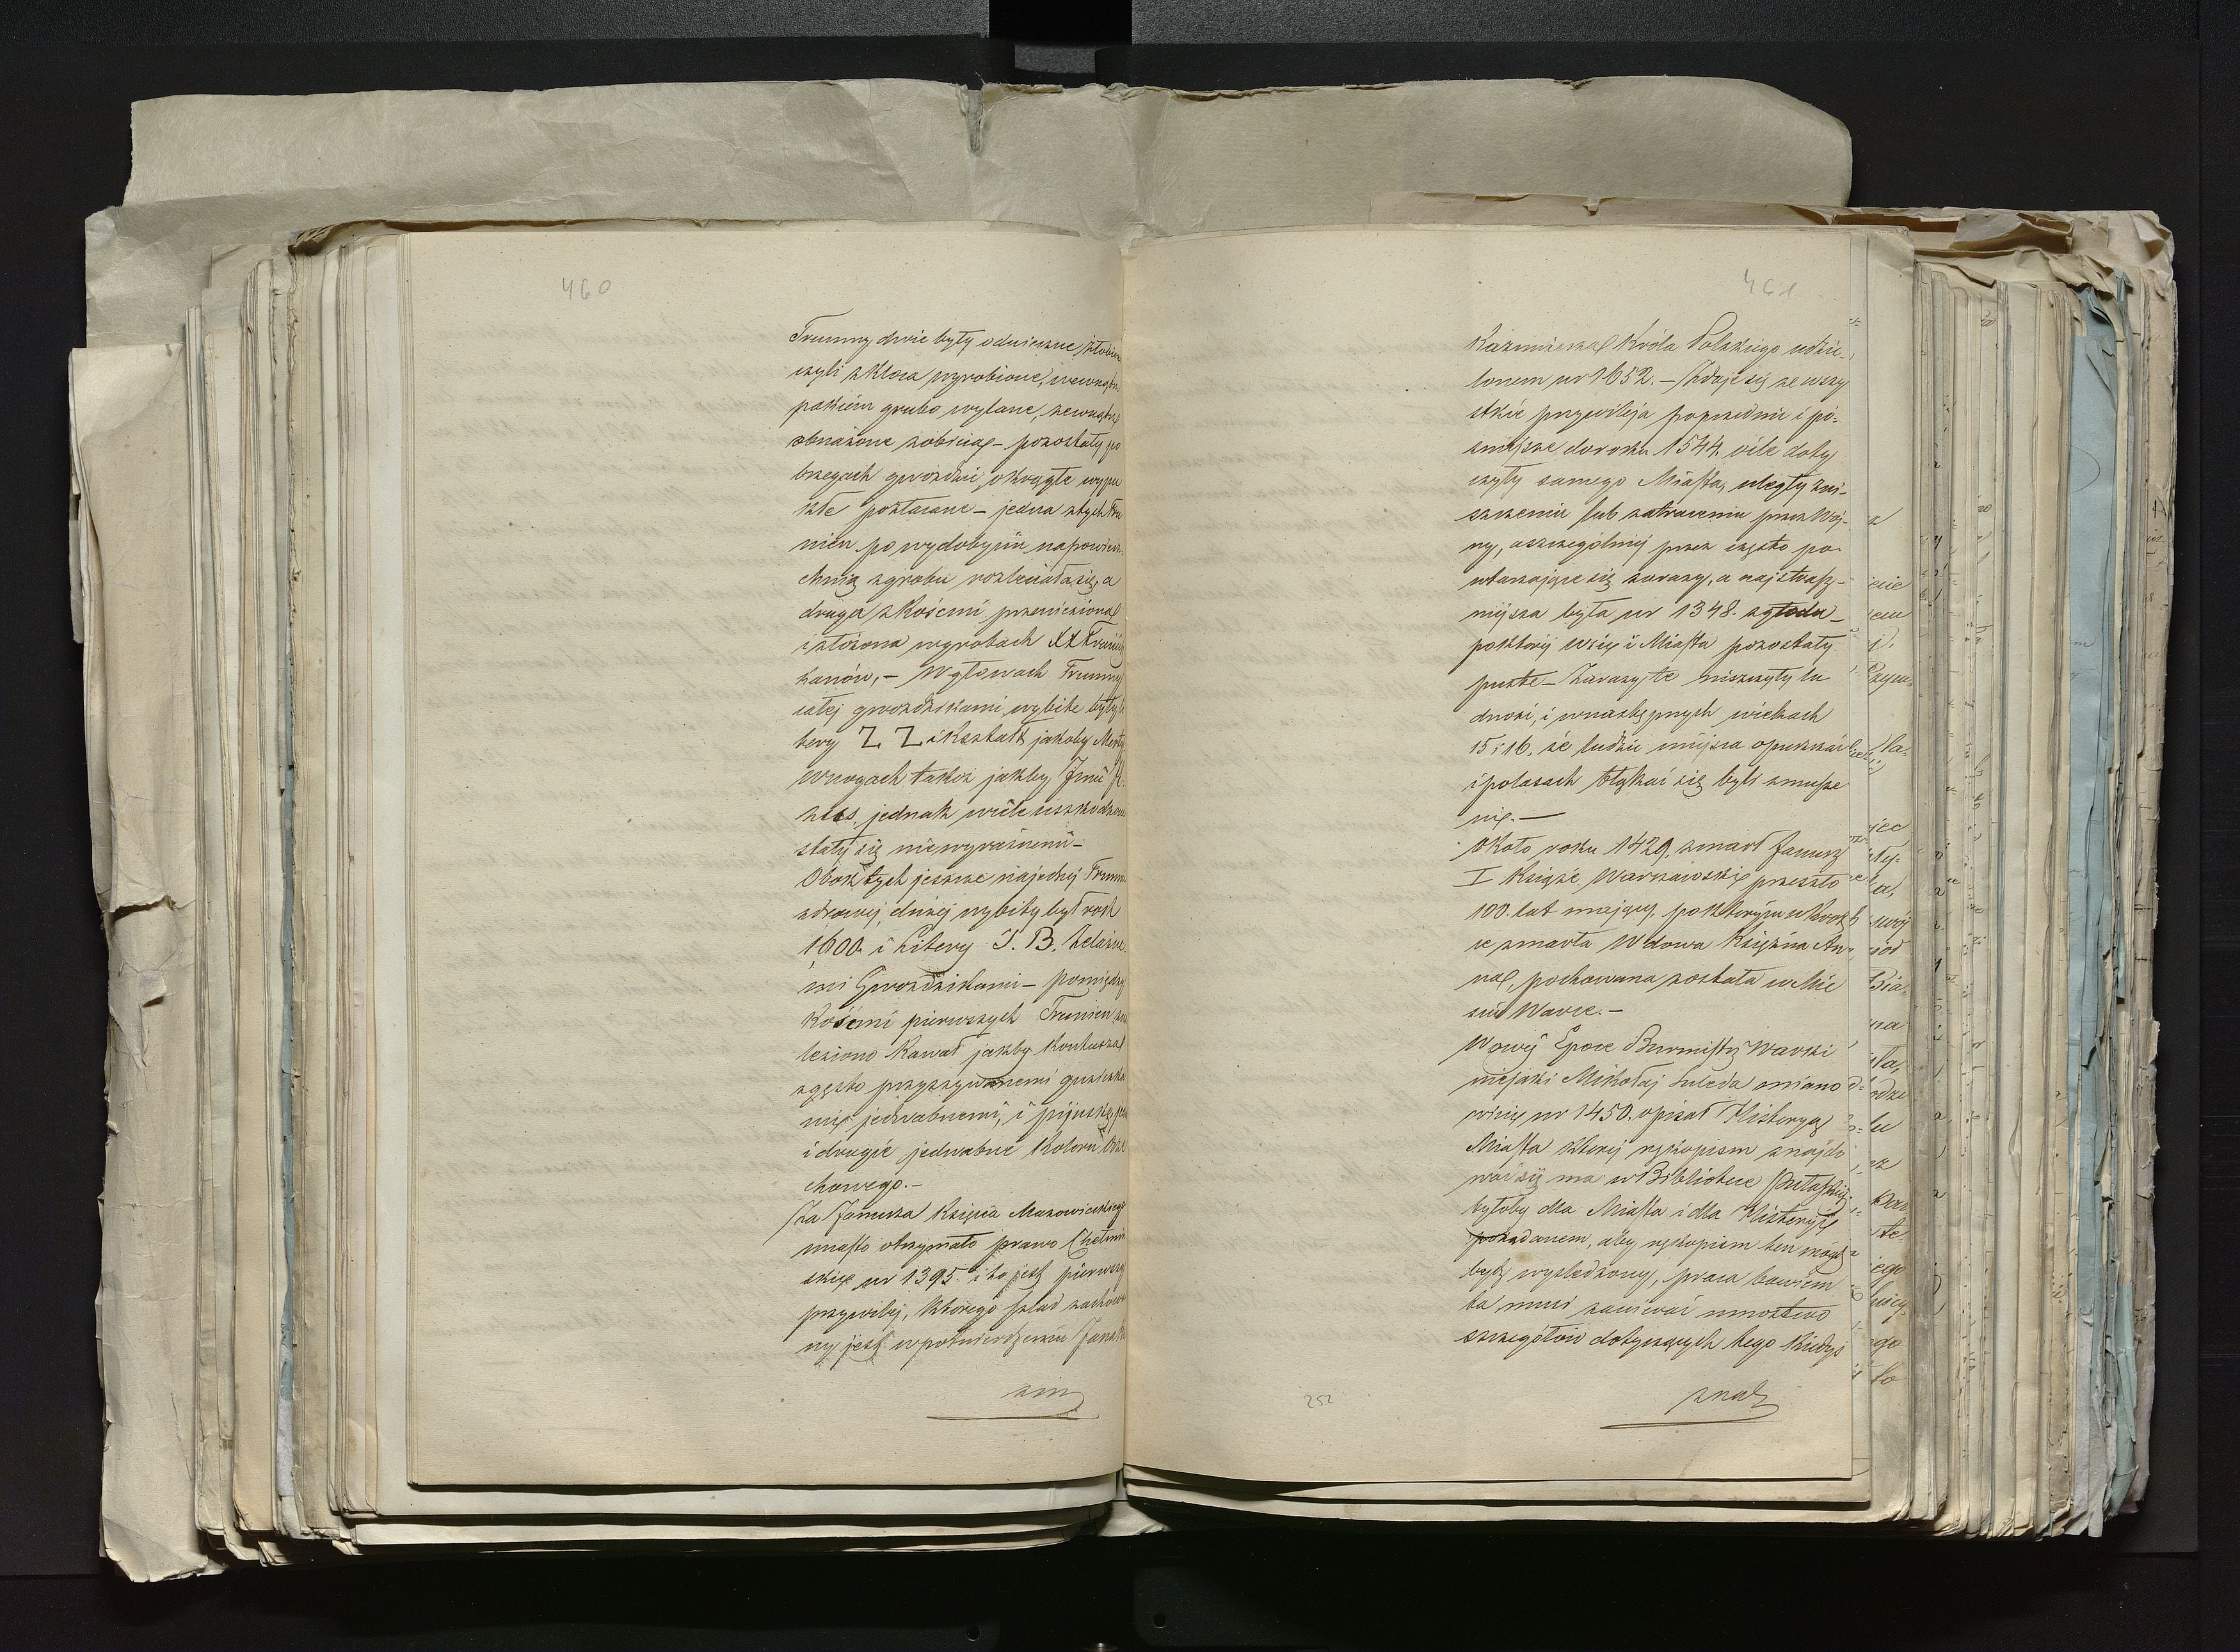 460
Trumny dwie były odwieczne, żłobio
czyli z kloca wyrobione, wewnątrz
pakiem grubo wylane, zewnątrz
obnażone z obicia – pozostały po
brzegach gwoździe okrągłe wypu
kłe pozłacane – jedna z tych tru
mien po wydobyciu na powierz
chnią z grobu rozleciała się, a
druga z kośćmi przeniesiona
i złożona w grobach XX Franciś
kanów, – W głowach Trumny
całej gwoździkami wybite były li
tery Z. Z. i kształt jakoby Mitry
w nogach takoż jakby Jmię
zaś jednak wiele uszkodzone
stały się niewyraźnemi –
Obok tych jeszcze na jednej Trum
zdrowej, dużej wybity był rok
1600. i Litery J. B. żelazne
mi Gwoździkami – pomiędzy
kośćmi pierwszych Trumien zna
leziono kawał jakby kontusza
z gęsto przyszywanemi guziczka
mi jedwabnemi, i pijuskę
i drugie jedwabne koloru Orze
chowego. –
Za Janusza Księcia Mazowieckiego
miasto otrzymało prawo Chełmiń
skie w r 1395. i to jest pierwszy
przywilej, którego ślad zachowa
ny jest w potwierdzeniu Jana Ka
zim
461
Kazimierza Króla Polskiego udzie-
lonem w r 1652. – Zdaje się ze wszy
stkie przywileja poprzednie i pó-
źniejsze do roku 1544. ile doty
czyły samego Miasta, uległy zni-
szczeniu lub zatraceniu przez Woj-
ny, a szczególniej przez często po-
wtarzające się zarazy, a najstrasz-
niejsza była w r 1348. z głodu –
po której wsie i Miasta pozostały
puste – Zarazy te niszczyły lu
dność, i w następnych wiekach
15 i 16. że ludzie miejsca opuszczać
i po lasach błąkać się byli zmusze
ni. –
Około roku 1429. zmarł Janusz
I Książe Warszawski przeszło
100. lat mający, po którym wkrot
ce zmarła Wdowa Księżna An-
na, pochowana została w Mie
ście Warce. –
W owej Epoce Burmistrz Warki
niejaki Mikołaj Suleda miano
wicie w r 1450. opisał Historyą
Miasta której rękopism znajdo
wać się ma w Bibliotece Puławskiej
byłoby dla Miasta i dla Historyi
pożądanem, aby rękopism ten mógł
być wyśledzony, praca bowiem
ta musi zawierać mnóztwo
szczegółów dotyczących tego kiedyś
znak
252